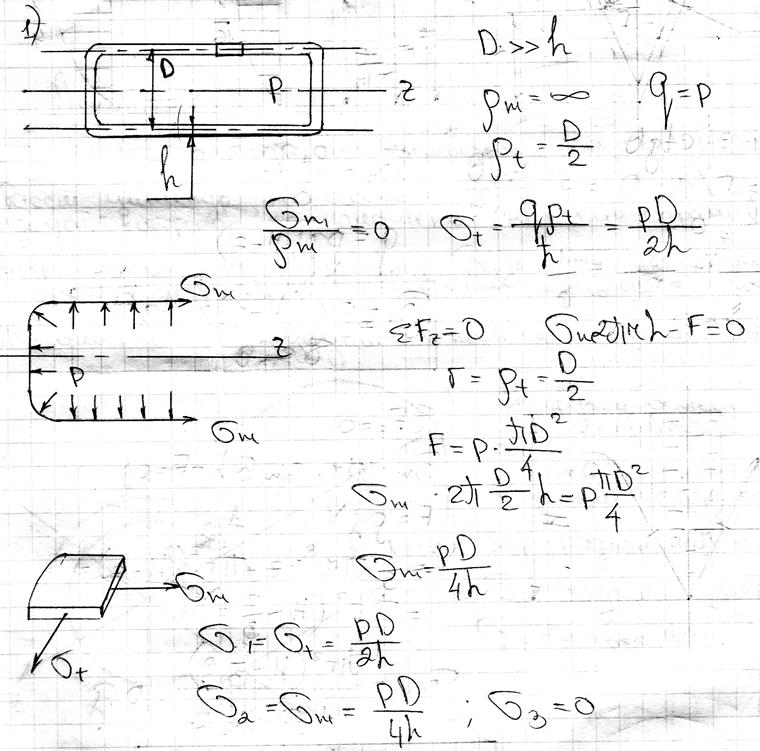 1)
D
P
z
h
D >> h
ρm = ∞
q = p
ρt = D/2
σm/ρm = 0
σt = qρt/h = pD/2h
σm
z
P
σm
ΣFz = 0
σm·2πrh - F = 0
r = ρt = D/2
F = P · πD²/4
σm · 2π D/2 h = P πD²/4
σm = pD/4h
σm
σt
σ1 = σt = pD/2h
σ2 = σm = pD/4h ; σ3 = 0